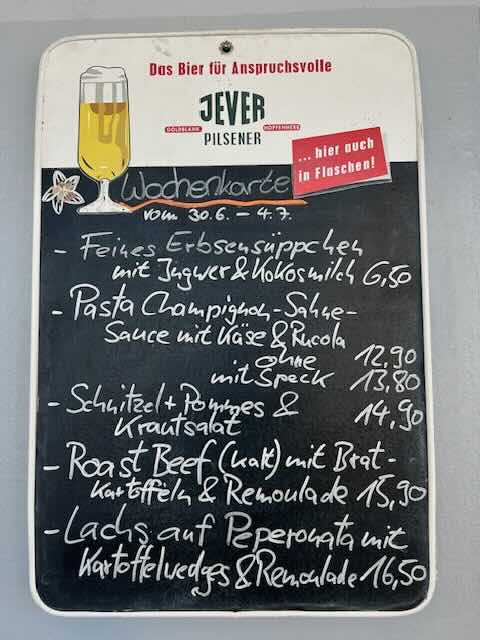 Das Bier für Anspruchsvolle
JEVER
GOLDBLANK HOPFENHERB
PILSENER
... hier auch
in Flaschen!
Wochenkarte
vom 30.6. – 4.7.
- Feines Erbsensüppchen
mit Ingwer & Kokosmilch 6,50
- Pasta Champignon-Sahne-
Sauce mit Käse & Rucola
ohne 12,90
mit Speck 13,80
- Schnitzel + Pommes & 14,90
Krautsalat
- Roast Beef (kalt) mit Brat-
kartoffeln & Remoulade 15,90
- Lachs auf Peperonata mit
Kartoffelwedges & Remoulade 16,50